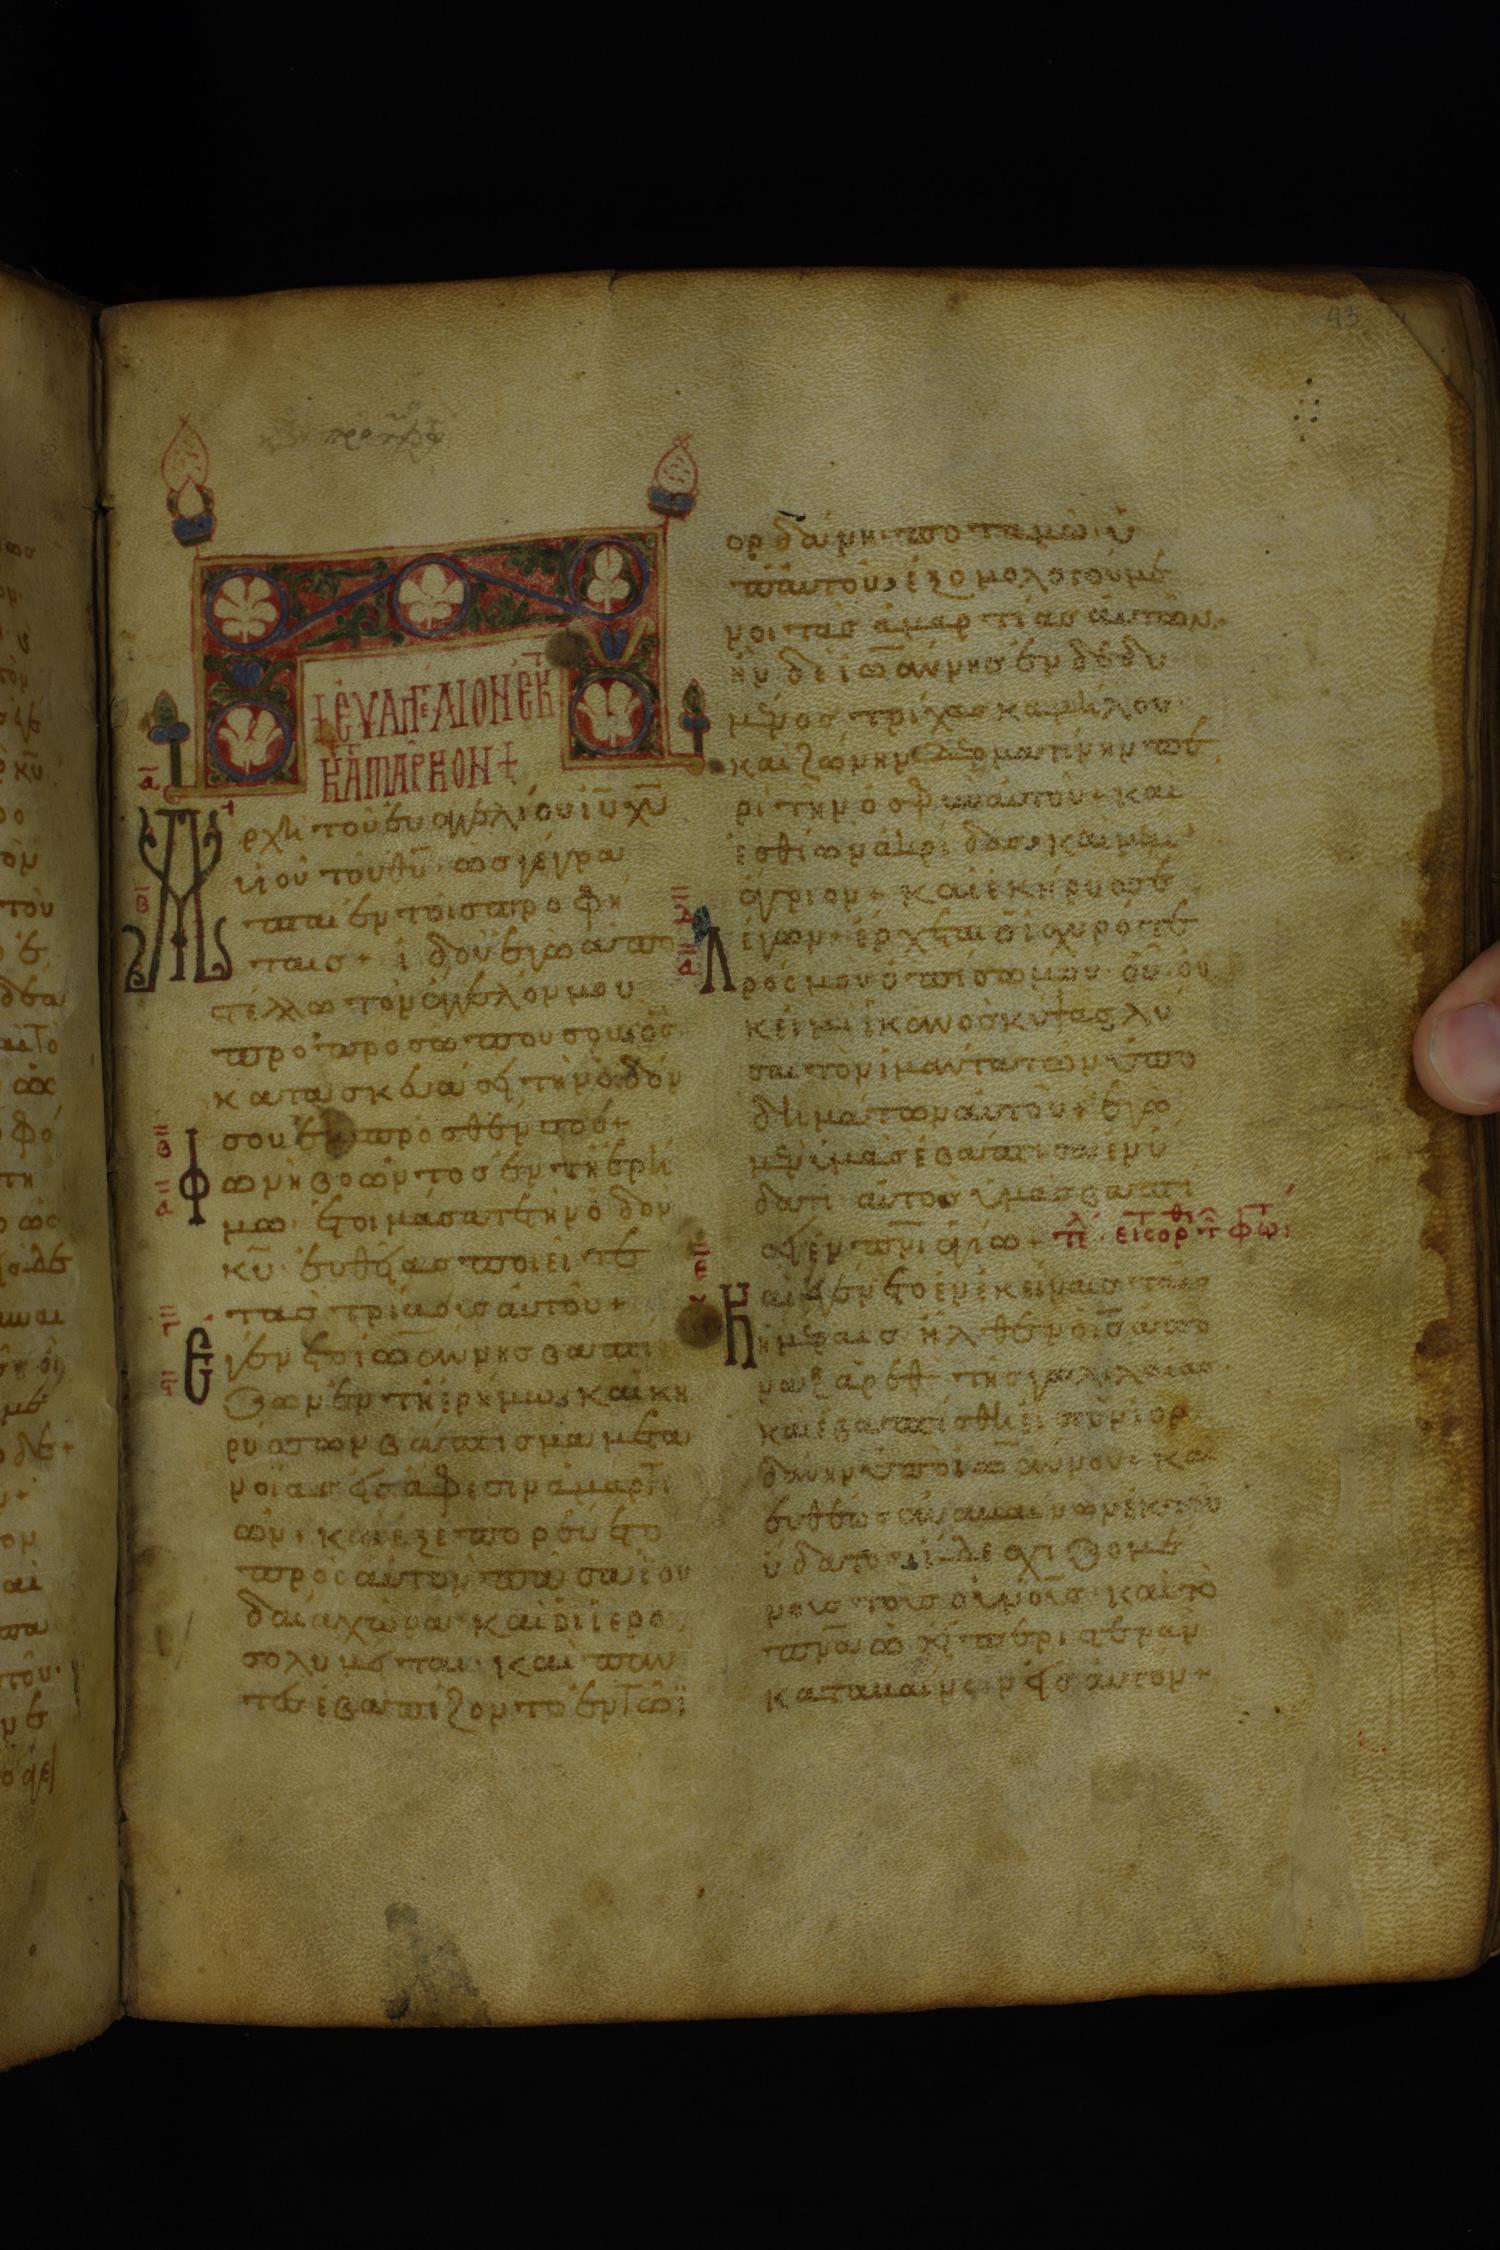 93
+ ἐυαγγέλιον ἐκ
κατὰ μάρκον +
Αρχὴ τοῦ ἐυαγγελίου ἰ̅υ̅ χ̅υ̅
υἱοῦ τοῦ θ̅υ̅· ὡς γέγρα
πται ἐν τοῖς προφή
ταις + ἰδοὺ ἐγὼ ἀπο
στέλλω τὸν ἄγγελόν μου
πρὸ προσώπου σου ὃς
κατασκευάσει τὴν ὁδόν
σου ἔμπροσθέν σου +
Φωνὴ βοῶντος ἐν τῆ ἐρή
μω· ἑτοιμάσατε τὴν ὁδὸν
κ̅υ̅ ἐυθείας ποιεῖτε
τὰς τρίβους αὐτοῦ +
Ἐγένετο ἰω̅άννης βαπτί
ζων ἐν τῆ ἐρήμω, καὶ κη
ρύσσων βάπτισμα μετα
νοίας εἰς ἄφεσιν ἁμαρτι
ῶν· καὶ ἐξεπορεύετο
πρὸς αὐτὸν πᾶσα ἡ ἰου
δαία χώρα· καὶ οἱ ἱερο
σολυμῖται· καὶ πάν
τες ἐβαπτίζοντο ἐν τῶ ἰ
ορδάνη ποταμῶ ὑ
π' αὐτοῦ, ἐξομολογούμε
νοι τὰς ἁμαρτίας αὐτῶν·
ἦν δὲ ἰω̅άννης ἐνδεδυ
μένος τρίχας καμήλου·
καὶ ζώνην δερματίνην πε
ρὶ τὴν ὀσφὺν αὐτοῦ + καὶ
ἐσθίων ἀκρίδας, καὶ μέλι
ἄγριον + καὶ ἐκήρυσσε
Λέγων· ἔρχεται ὁ ἰσχυρότε
ρός μου ὀπίσω μου οὗ οὐ
κ εἰμὶ ἱκανὸς κύψας λύ
σαι τὸν ἱμάντα τῶν ὑπο
δημάτων αὐτοῦ + ἐγὼ
μὲν ὑμᾶς ἐβάπτισα ἐν ὕ
δατι αὐτὸς ὑμᾶς βαπτί
σει ἐν π̅ν̅ι ἁγίω +
Καὶ ἐγένετο ἐν ἐκείναις ταῖς
ἡμέραις ἦλθεν ὁ ἰ̅ς̅ ἀπὸ
ναζαρὲθ τῆς γαλιλαίας·
καὶ ἐβαπτίσθη εἰς τὸν ἰορ
δάνην ὑπὸ ἰω̅άννου· καὶ
ἐυθέως ἀναβαίνων ἐκ τοῦ
ὕδατος εἶδε σχιζομέ
νους τοὺς οὐ̅νοὺς· καὶ τὸ
π̅ν̅α̅ ὡσεὶ περιστερὰν
καταβαῖνον εἰς αὐτὸν +